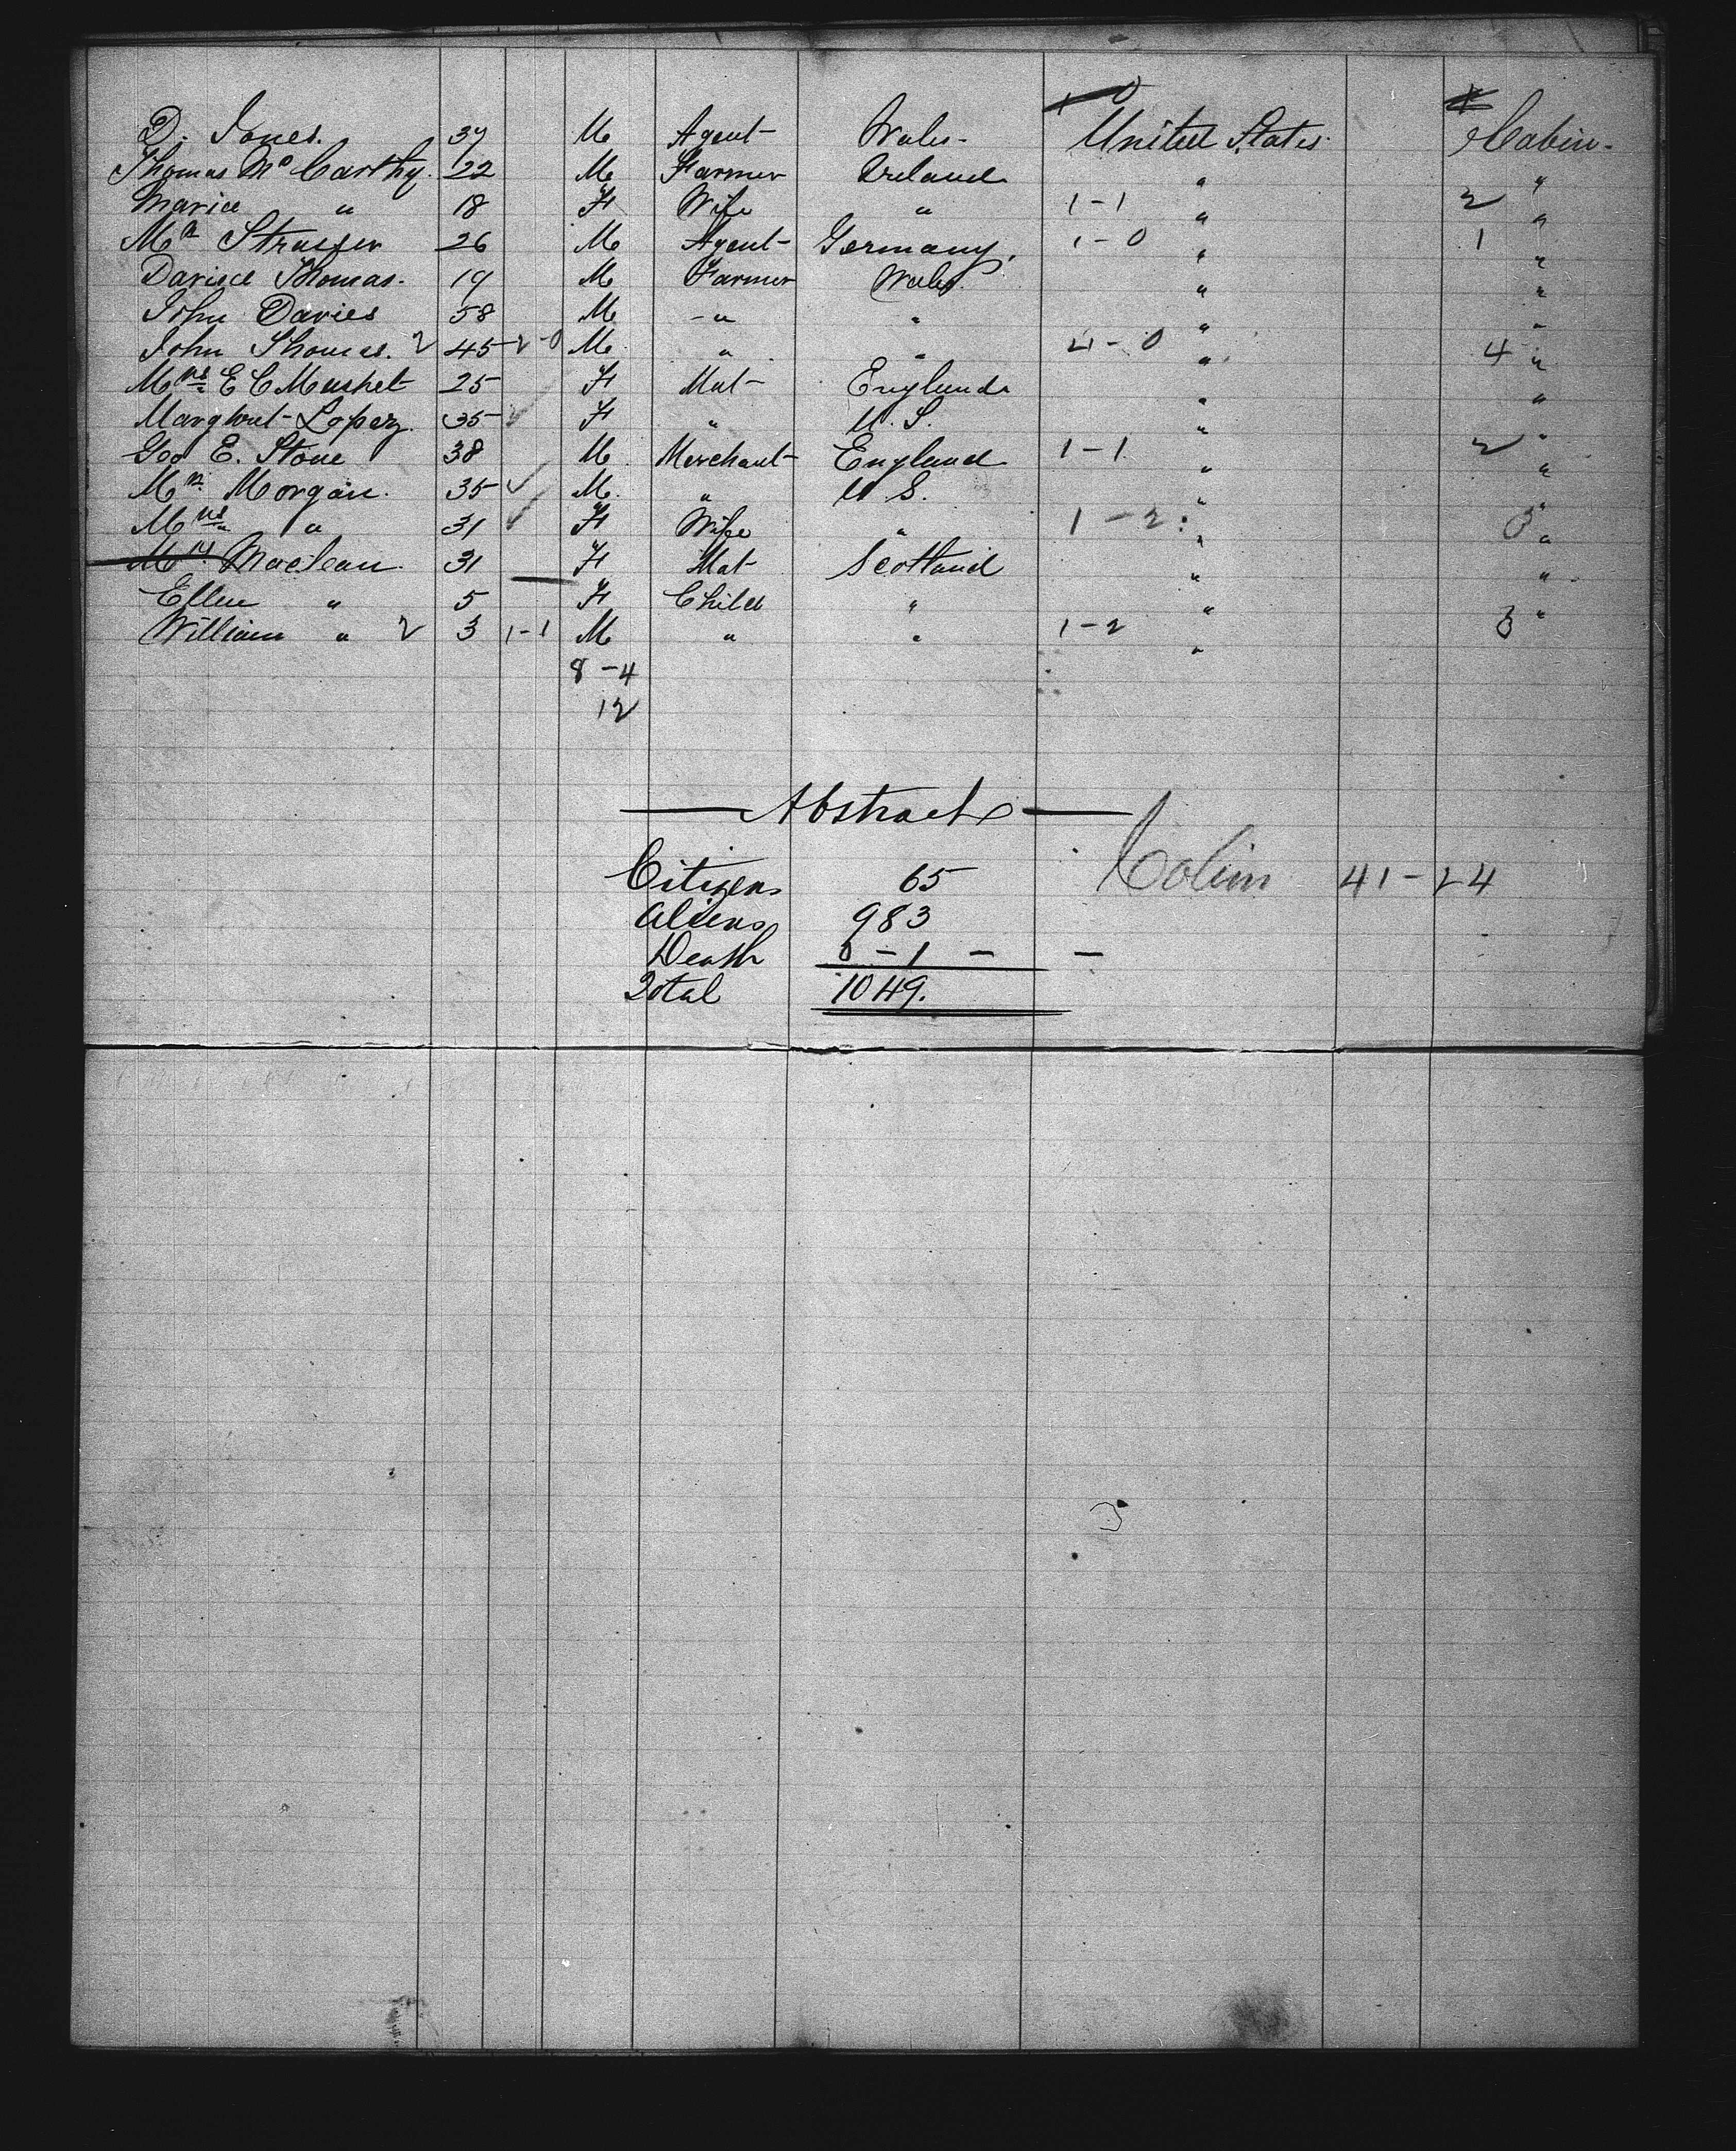 1-0 1
D. Jones. 37 M Agent- Wales- United States. Cabin-
Thomas McCarthy. 22 M Farmer Ireland " "
Maria " 18 F Wife " 1-1 " 2 "
Mr Strasser 26 M Agent- Germany. 1-0 " 1 "
Thomas. 19 M Farmer Wales. " "
John Davies 58 M -" " " "
John Thomas. 2 45 2-0 M " " 4-0 " 4 "
Mrs E C Mushet 25 F Mat- England " "
Lopez. 35 ✓ F " U.S. " "
Geo E. Stone 38 M Merchant- England 1-1. " 2 "
Mr. Morgan. 35 ✓ M. " U S. " "
Mrs " 31 ✓ F Wife " 1-2 " 3 "
Maclean. 31 F Mat- Scotland " "
Ellen " 5 F Child " " "
William " 2 3 1-1 M " " 1-2 " 3
8-4
12
Abstract
Citizens 65 Cabin 41-24
Aliens 983
Death 0-1 - -
Total 1049.